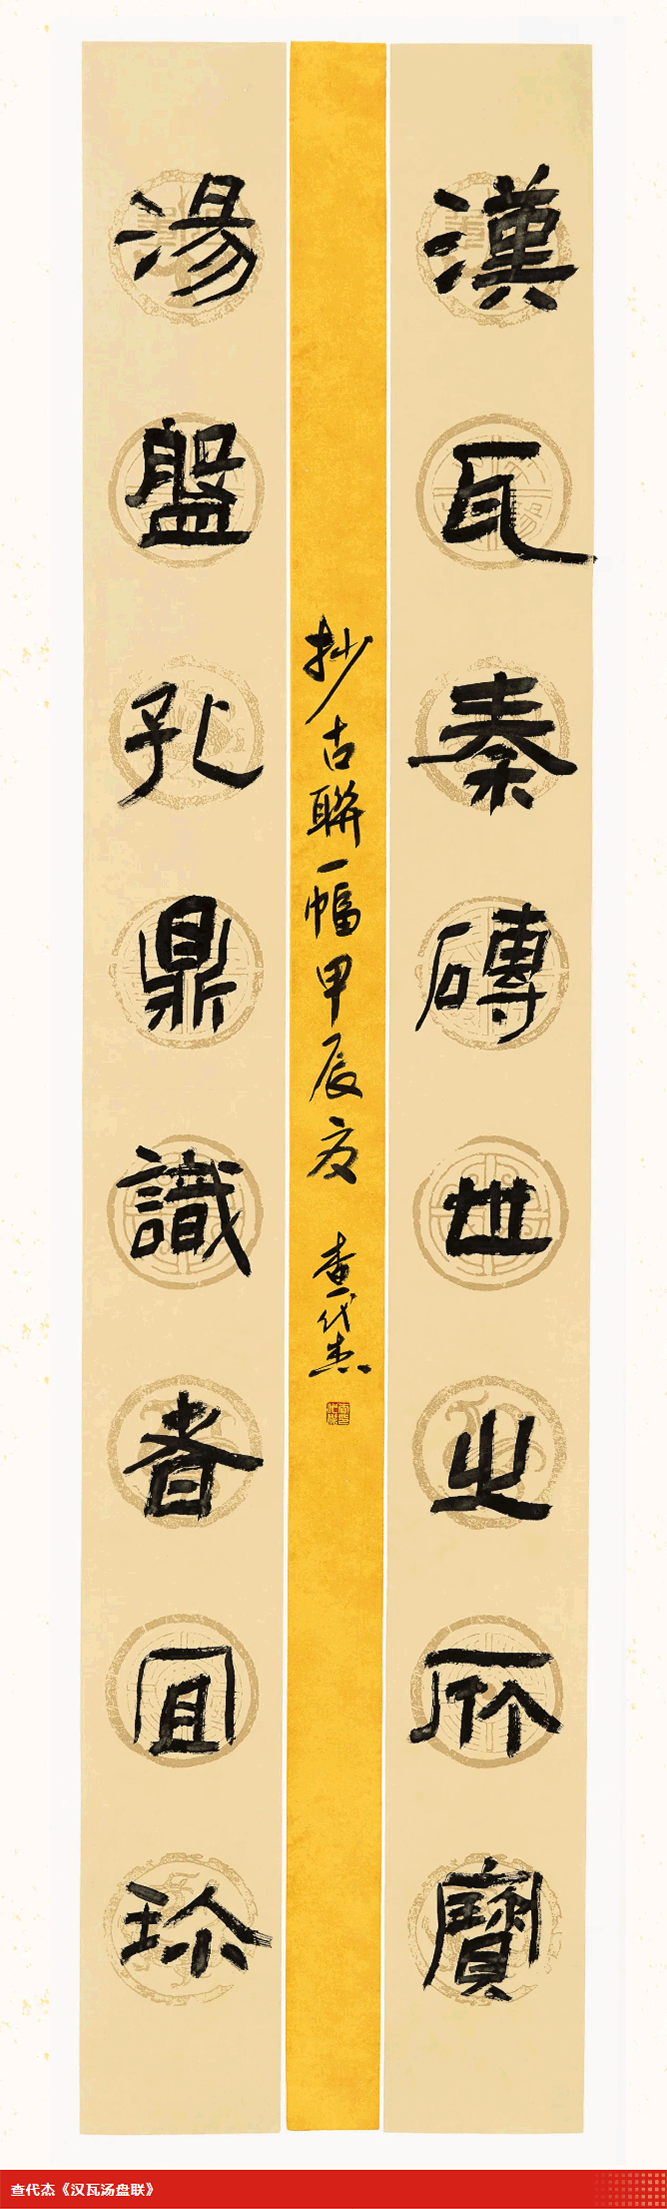 漢瓦秦磚世之所寶
湯盤孔鼎識者宜珍
抄古聯一幅甲辰夏 查代杰
查代杰《汉瓦汤盘联》